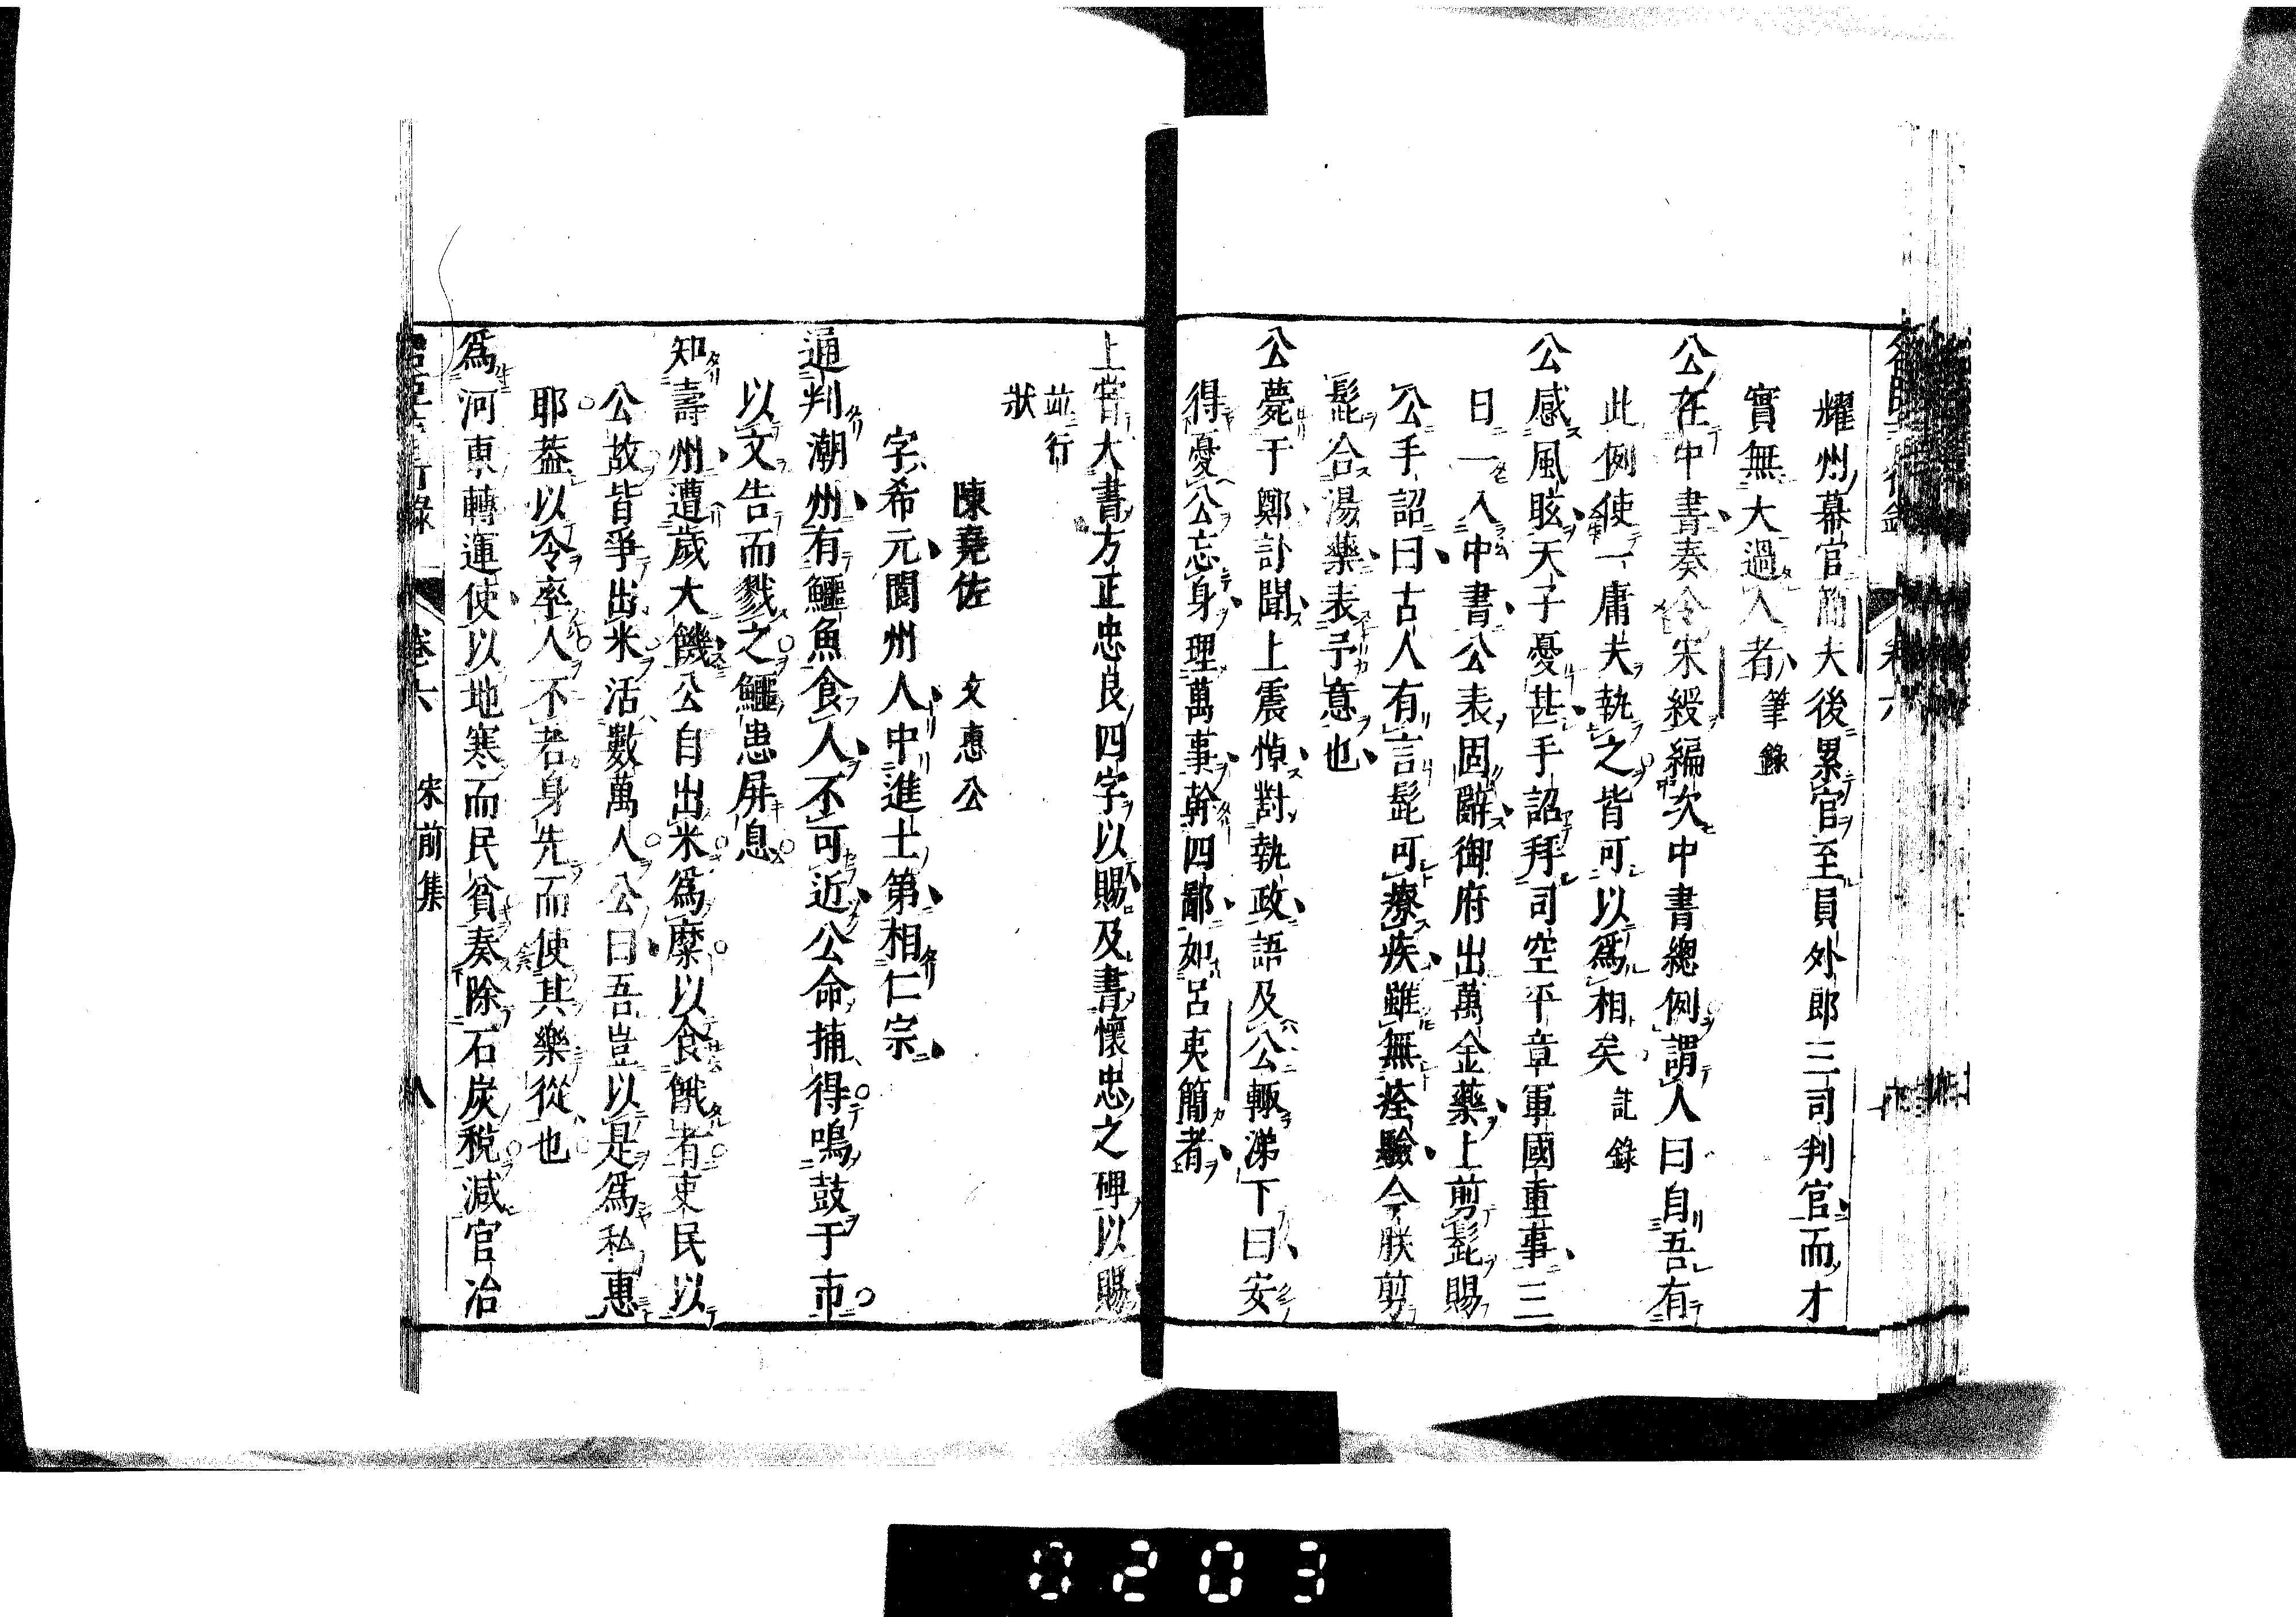 耀州幕官簡夫後累官至員外郎三司判官而才
實無大過人者筆錄
公在中書奏令宋綬編次中書總例謂人曰自吾有
此例使一庸夫執之皆可以爲相矣記錄
公感風眩天子憂甚手詔拜司空平章軍國重事三
日一入中書公表固辭御府出萬金藥上剪髭賜
公手詔曰古人有言髭可療疾雖無痊驗今朕剪
髭合湯藥表予意也
公薨于鄭訃聞上震悼對執政語及公輙涕下曰安
得憂公忘身理萬事幹四鄙如呂夷簡者
上嘗大書方正忠良四字以賜及書懷忠之碑以賜
並行
狀
陳堯佐 文惠公
字希元閬州人中進士第相仁宗
通判潮州有鱷魚食人不可近公命捕得鳴鼓于市
以文告而戮之鱷患屏息
知壽州遭歲大饑公自出米爲糜以食餓者吏民以
公故皆爭出米活數萬人公曰吾豈以是爲私惠
耶蓋以令率人不若身先而使其樂從也
爲河東轉運使以地寒而民貧奏除石炭稅減官冶
名臣言行錄 卷六 宋前集 八
0203